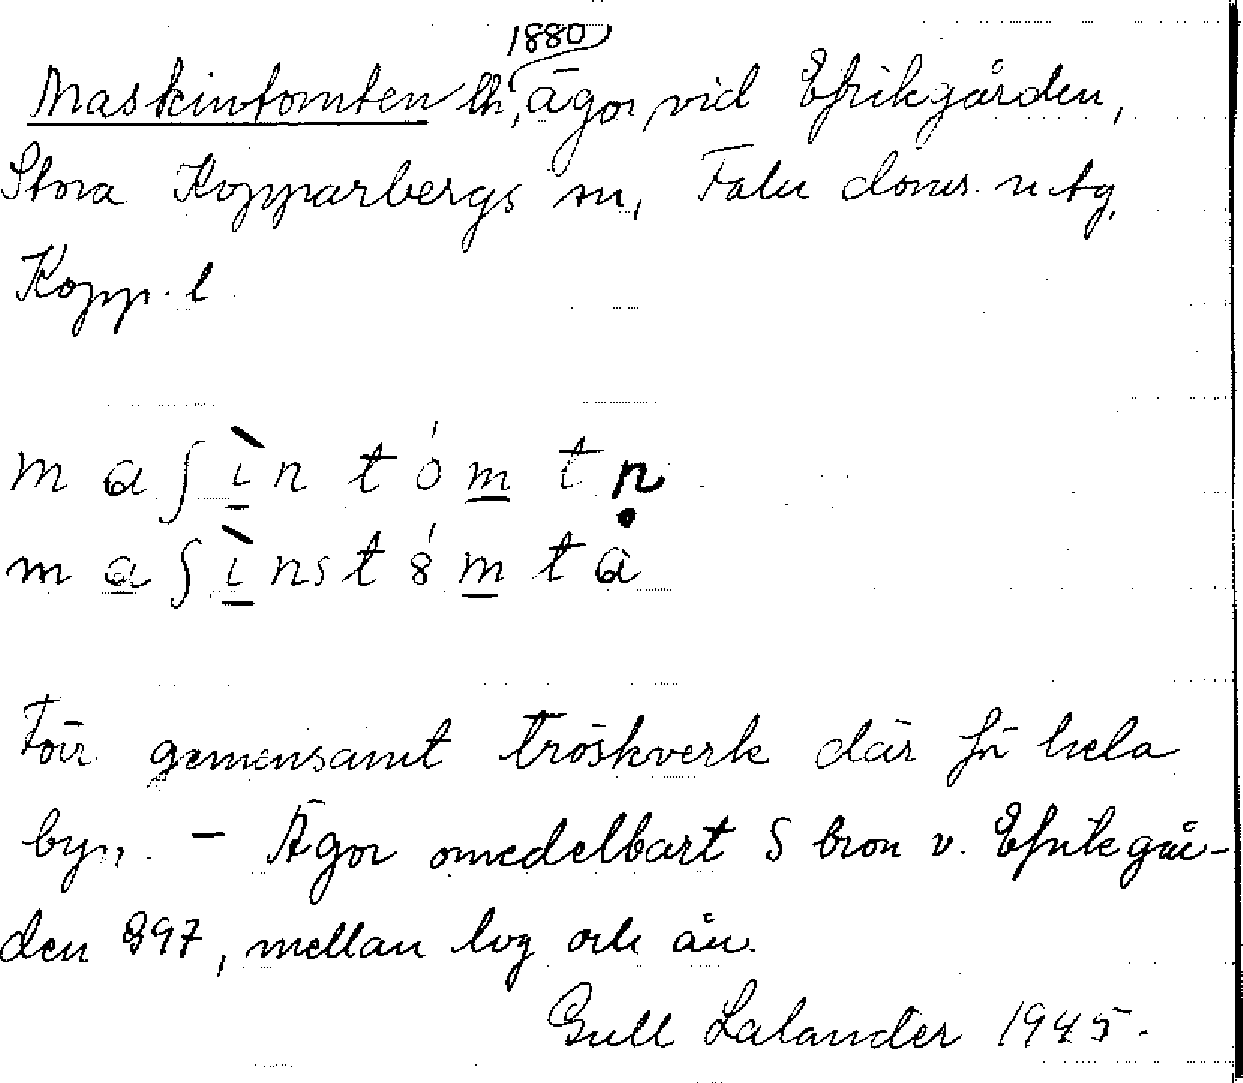 1880
Maskintomten lh, ägor vid Efrikgården,
Stora Kopparbergs sn, Falu doms. n tg,
Kopp. l
m a ʃ ì n t ó m t n
m a ʃ ì n s t 8́ m t a
Förr gemensamt tröskverk där fr hela
byn. – Ägor omedelbart S bron v. Efrikgår-
den 997, mellan log och ån.
Gull Lalander 1945.